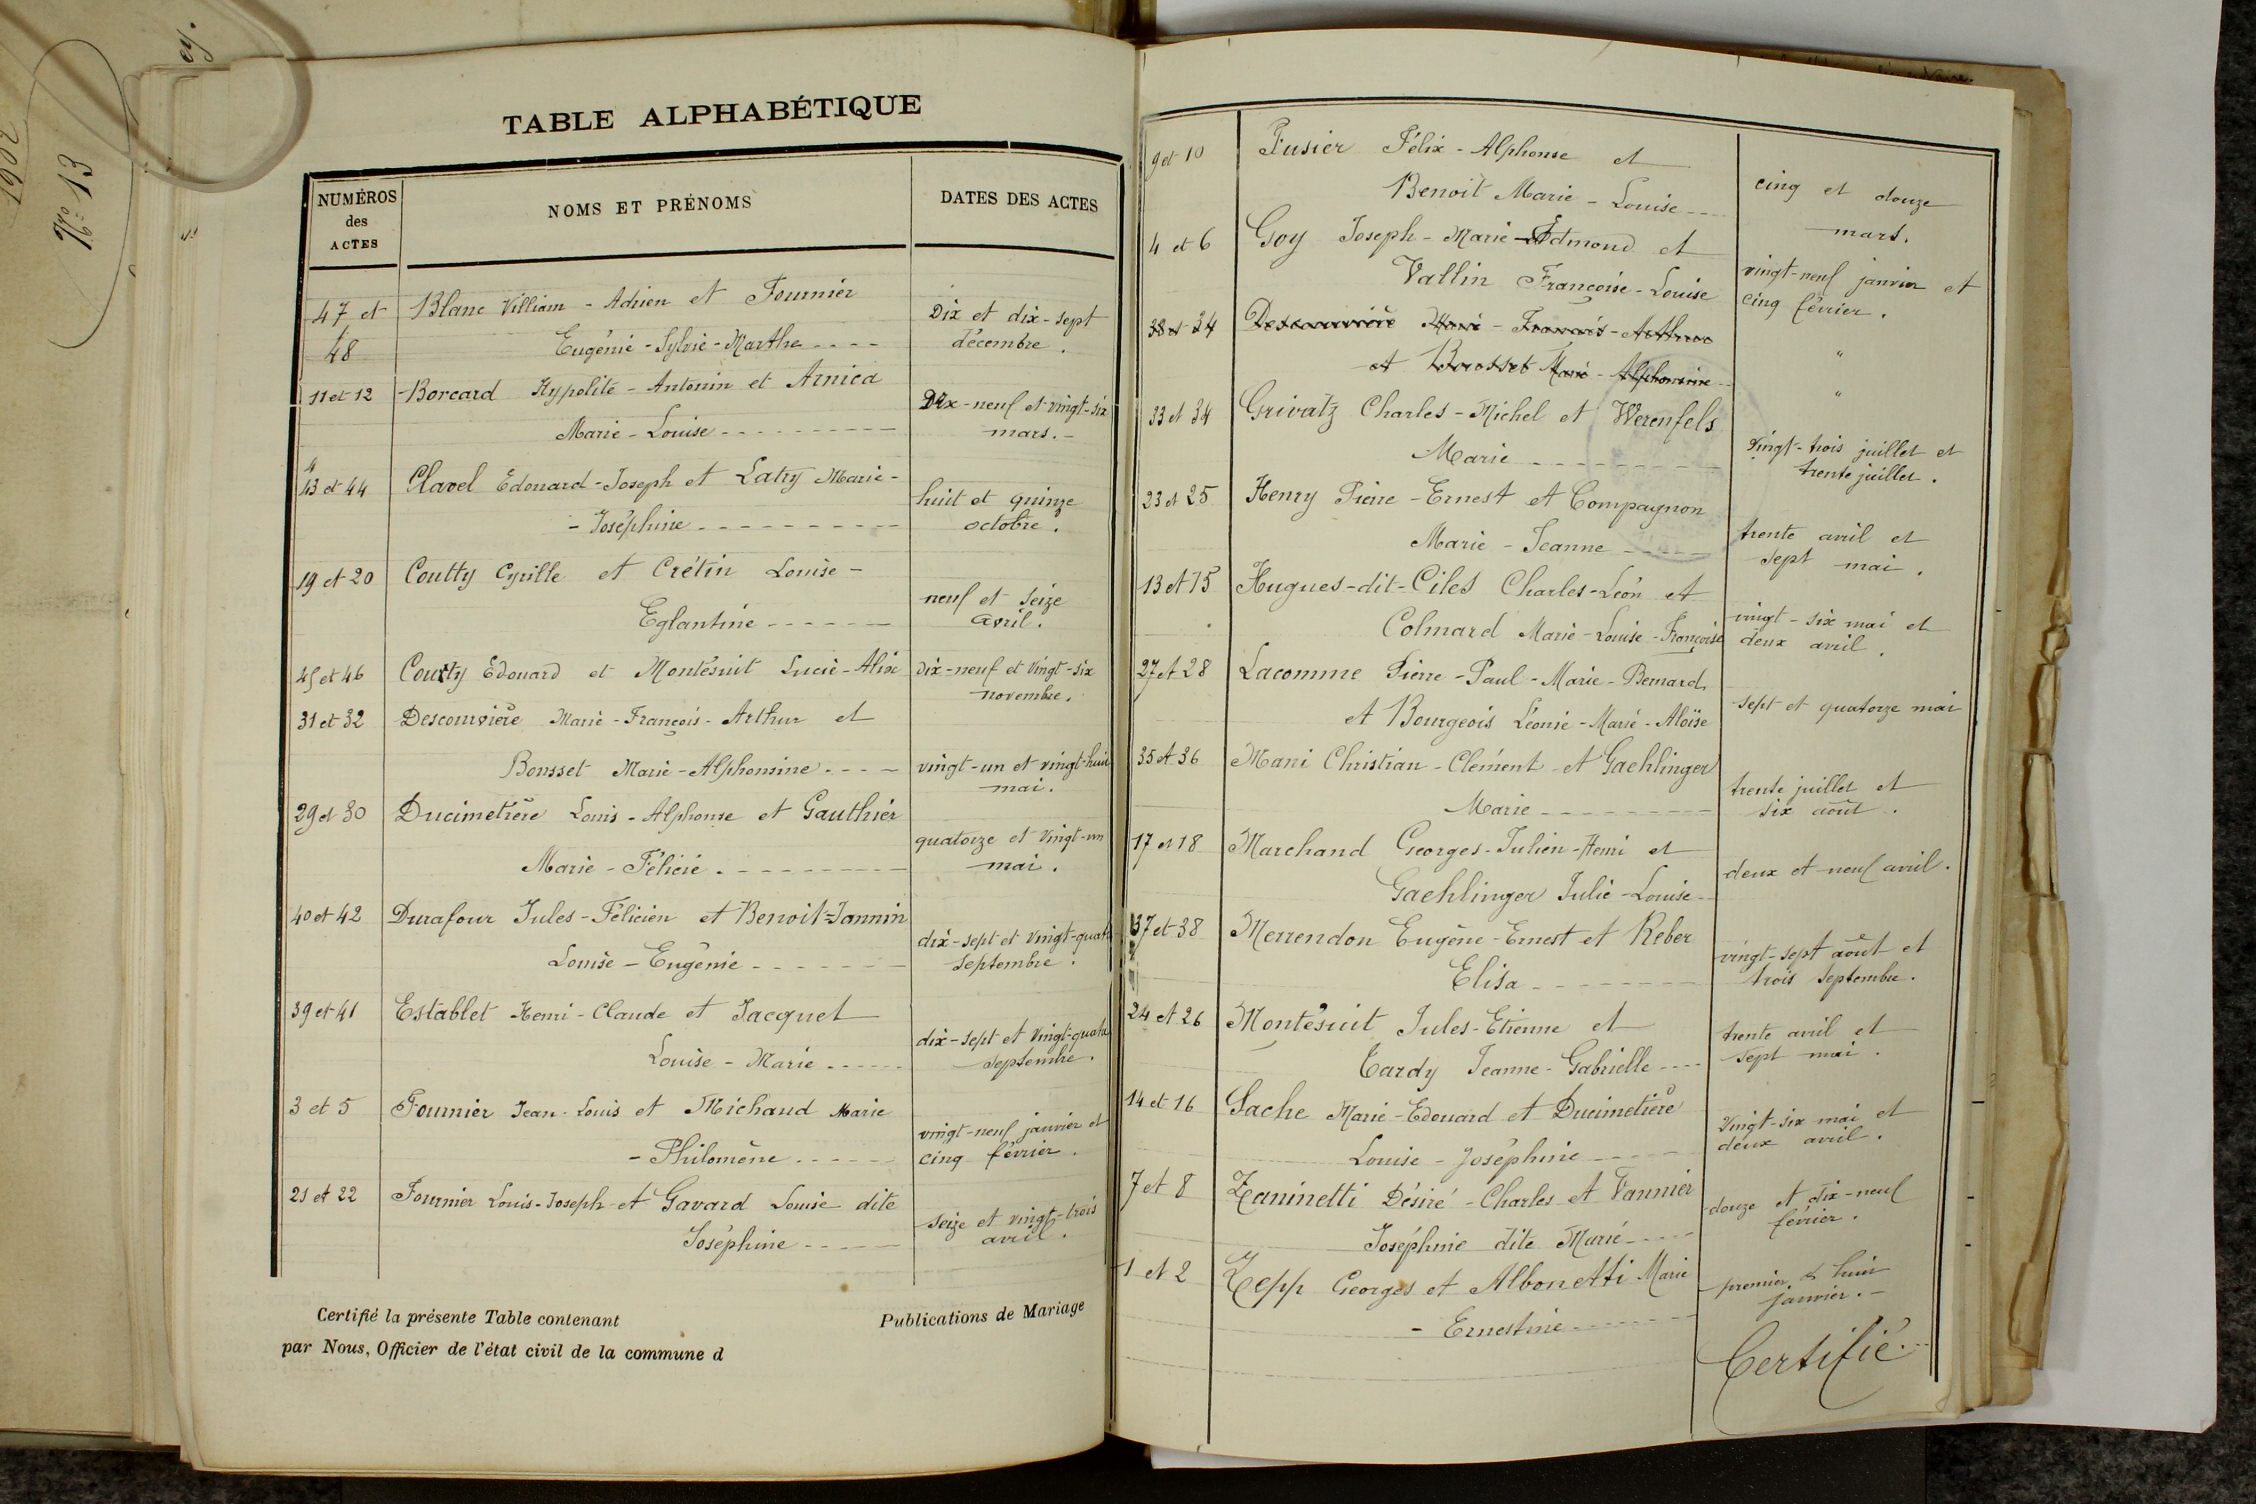 ey.
1902
No 13
TABLE ALPHABÉTIQUE
NUMÉROS des ACTES
NOMS ET PRÉNOMS
DATES DES ACTES
47 et Blanc Villiam - Adrien et Fournier Dix et dix-sept
48 Eugénie - Sylvie - Marthe décembre.
11 et 12 Borcard Hypolite - Antonin et Arnica Dix-neuf et vingt-six
Marie - Louise mars.
43 et 44 Clavel Edouard - Joseph et Latry Marie - huit et quinze
- Joséphine octobre.
19 et 20 Coutty Cyrille et Crétin Louise - neuf et seize
Eglantine avril.
45 et 46 Coutty Edouard et Montésuit Lucie - Alix dix-neuf et vingt-six
novembre.
31 et 32 Descouvière Marie - François - Arthur et
Bonsset Marie - Alphonsine vingt-un et vingt-huit
mai.
29 et 30 Ducimetière Louis - Alphonse et Gauthier quatorze et vingt-un
Marie - Félicie mai.
40 et 42 Durafour Jules - Félicien et Benoit=Jannin dix-sept et vingt-quatre
Louise - Eugénie septembre.
39 et 41 Establet Henri - Claude et Jacquet dix-sept et vingt-quatre
Louise - Marie septembre.
3 et 5 Fournier Jean - Louis et Michaud Marie vingt-neuf janvier et
- Philomène cinq février.
21 et 22 Fournier Louis - Joseph et Gavard Louise dite seize et vingt-trois
Joséphine avril.
Certifié la présente Table contenant Publications de Mariage
par Nous, Officier de l'état civil de la commune d
9 et 10 Fusier Félix - Alphonse et cinq et douze
Benoit Marie - Louise mars.
4 et 6 Goy Joseph - Marie - Edmond et vingt-neuf janvier et
Vallin Françoise - Louise cinq février.
34 Descouvière Marie - François - Arthur "
et Marie - Alphonsine "
33 et 34 Grivatz Charles - Michel et Werenfels vingt-trois juillet et
Marie trente juillet.
23 et 25 Henry Pierre - Ernest et Compagnon trente avril et
Marie - Jeanne sept mai.
13 et 15 Hugues-dit-Cilet Charles - Léon et vingt-six mai et
Colmard Marie - Louise - Françoise deux avril.
27 et 28 Lacomme Pierre - Paul - Marie - Bernard sept et quatorze mai
et Bourgeois Léonie - Marie - Aloïse
35 et 36 Mani Christian - Clément et Gaehlinger trente juillet et
Marie six août.
17 et 18 Marchand Georges - Julien - Henri et deux et neuf avril.
Gaehlinger Julie - Louise
37 et 38 Merrendon Eugène - Ernest et Reber vingt-sept août et
Elisa trois septembre.
24 et 26 Montésuit Jules - Etienne et trente avril et
Tardy Jeanne - Gabrielle sept mai.
14 et 16 Sache Marie - Edouard et Ducimetière vingt-six mai et
Louise - Joséphine deux avril.
7 et 8 Zaninetti Désiré - Charles et Vannier douze et dix-neuf
Joséphine dite Marie février.
1 et 2 Zepp Georges et Albonetti Marie premier & huit
- Ernestine janvier.
Certifié.